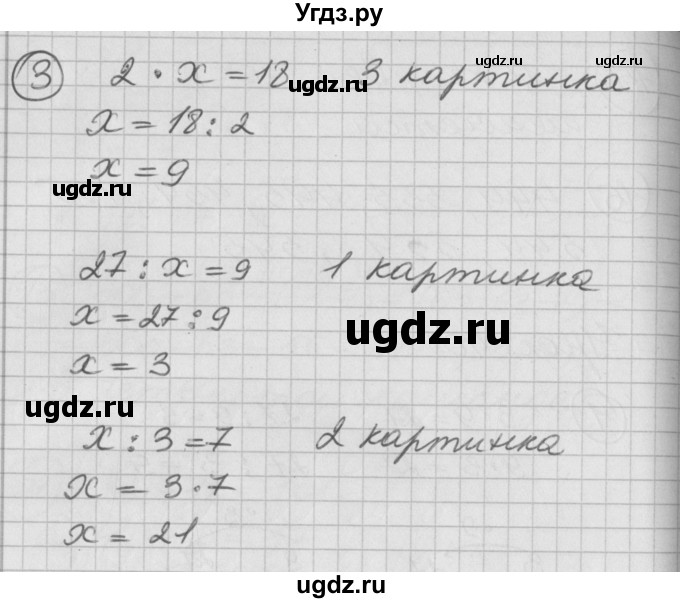 Угдз.ру
3 2 · x = 18 3 картинка
ugdz.ru ugdz.ru
x = 18 : 2
x = 9
ugdz.ru
27 : x = 9 1 картинка
x = 27 : 9
ugdz.ru
x = 3
ugdz.ru
x : 3 = 7 2 картинка
x = 3 · 7
x = 21
ugdz.ru
ugdz.ru